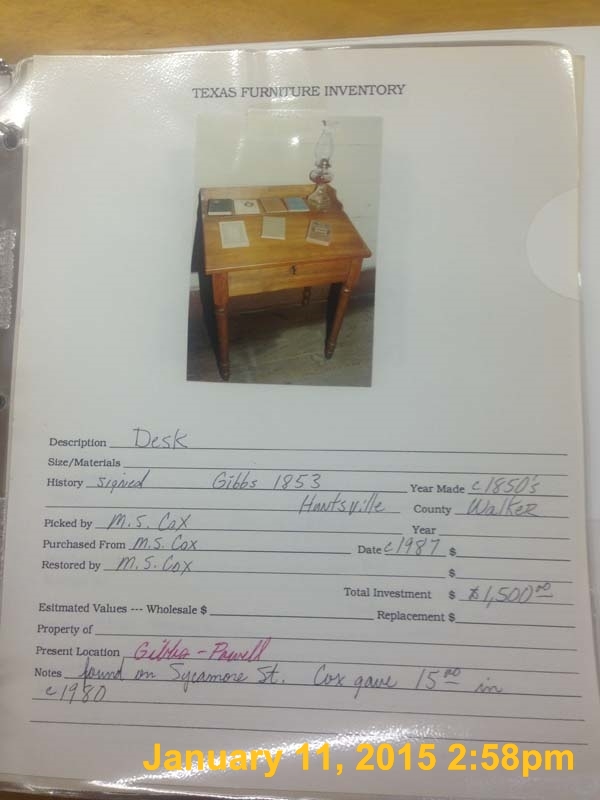 TEXAS FURNITURE INVENTORY
Description Desk
Size/Materials
History signed Gibbs 1853 Year Made c1850's
Huntsville County Walker
Picked by M.S. Cox Year
Purchased From M.S. Cox Date c1987 $
Restored by M.S. Cox $
Total Investment $ $1,500.00
Esitmated Values --- Wholesale $ Replacement $
Property of
Present Location Gibbs - Powell
Notes found on Sycamore St. Cox gave 15.00 in
c1980
January 11, 2015 2:58pm